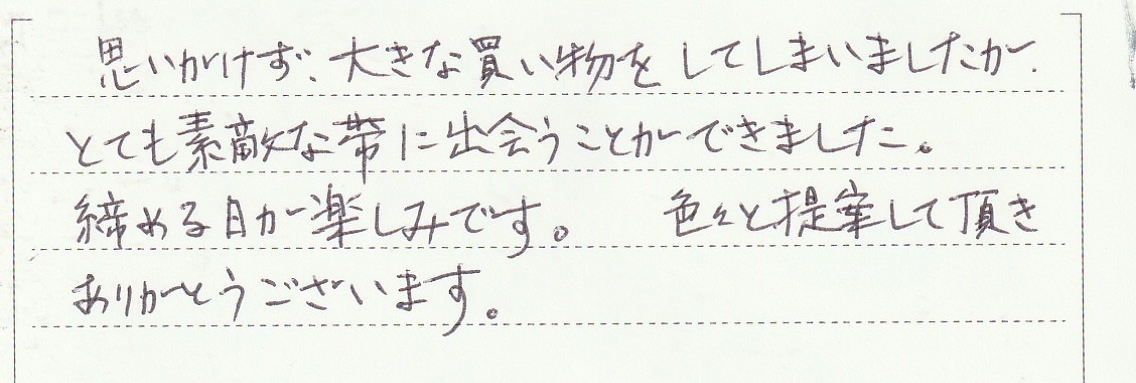 思いがけず、大きな買い物をしてしまいましたが、
とても素敵な帯に出会うことができました。
締める日が楽しみです。 色々と提案して頂き
ありがとうございます。